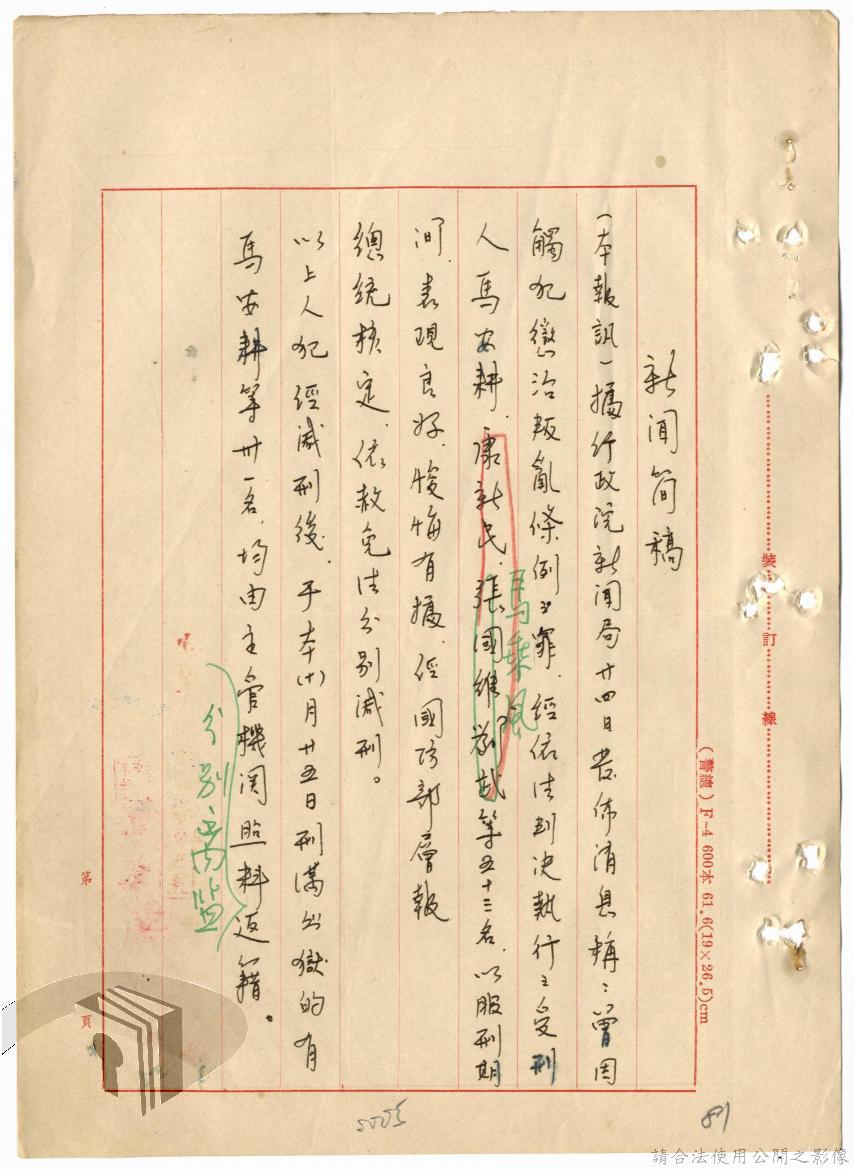 新聞簡稿
(本報訊)據行政院新聞局廿四日發佈消息稱:曾因
觸犯懲治叛亂條例之罪,經依法判決執行之受刑
人馬安耕、康新民、張國維、等五十三名,以服刑期
馬乘風
間,表現良好,悛悔有據,經國防部層報
總統核定,依赦免法分別減刑。
以上人犯經減刑後,于本(十)月廿五日刑滿出獄的有
馬安耕等卅一名,均由主管機関照料返籍。
分別離監
裝訂線
(書誰)F-4 600本 61.6(19×26.5)cm
第 頁
891
請合法使用公開之影像